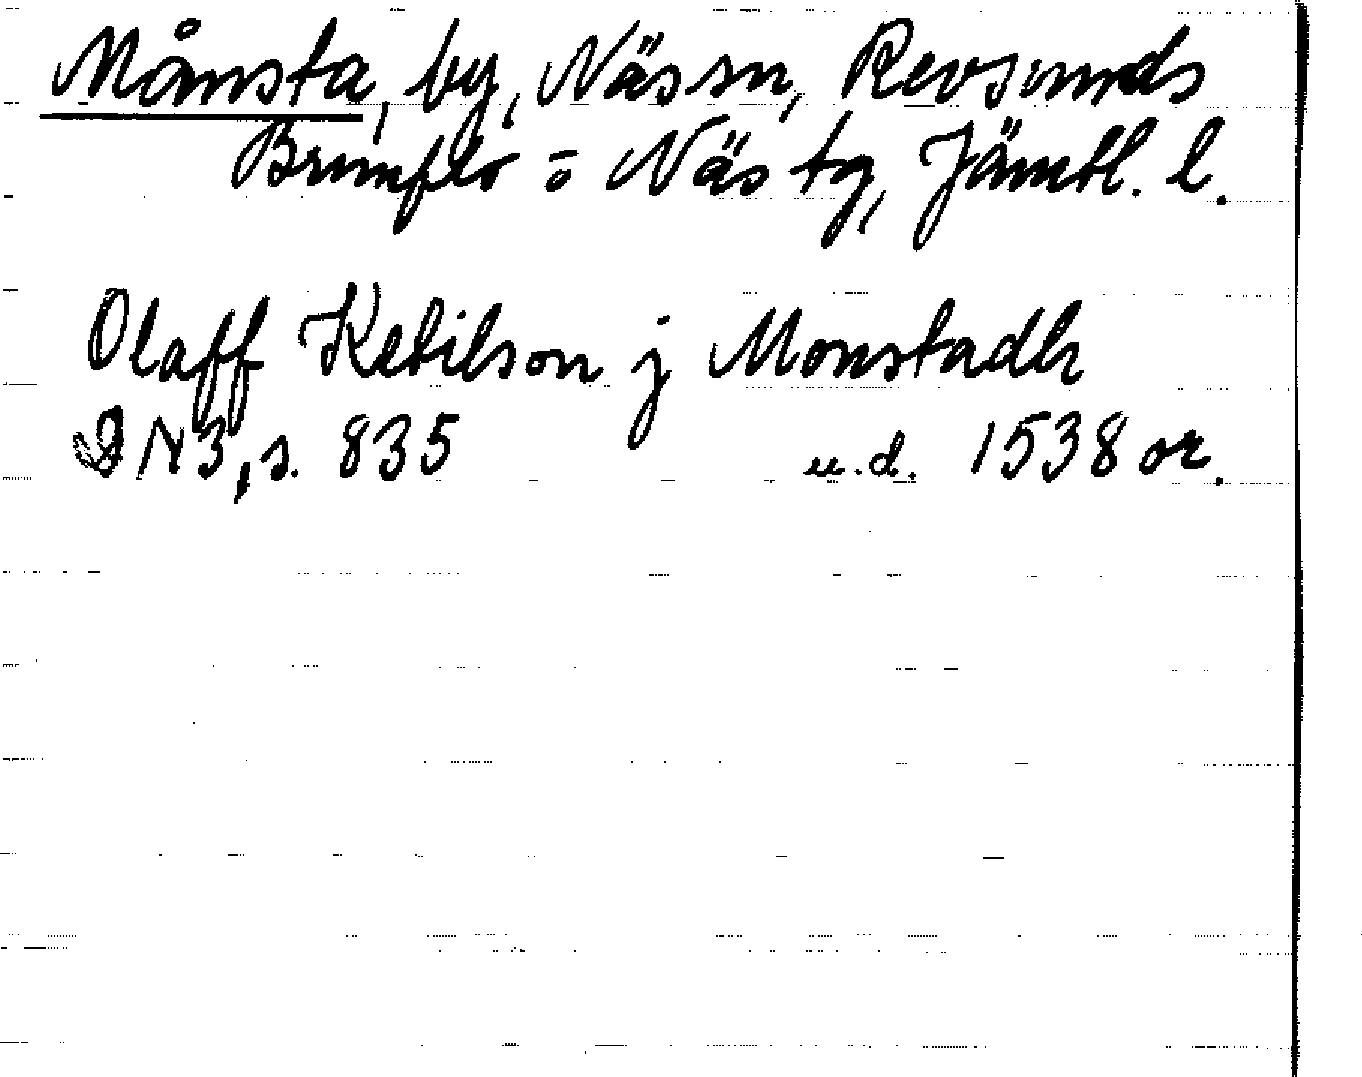 Månsta, by, Näs sn, Revsunds
Brunflo o Näs tg, Jämtl. l.
Olaff Ketilson j Monstadh
DN3, s. 835 u.d. 1538 or.